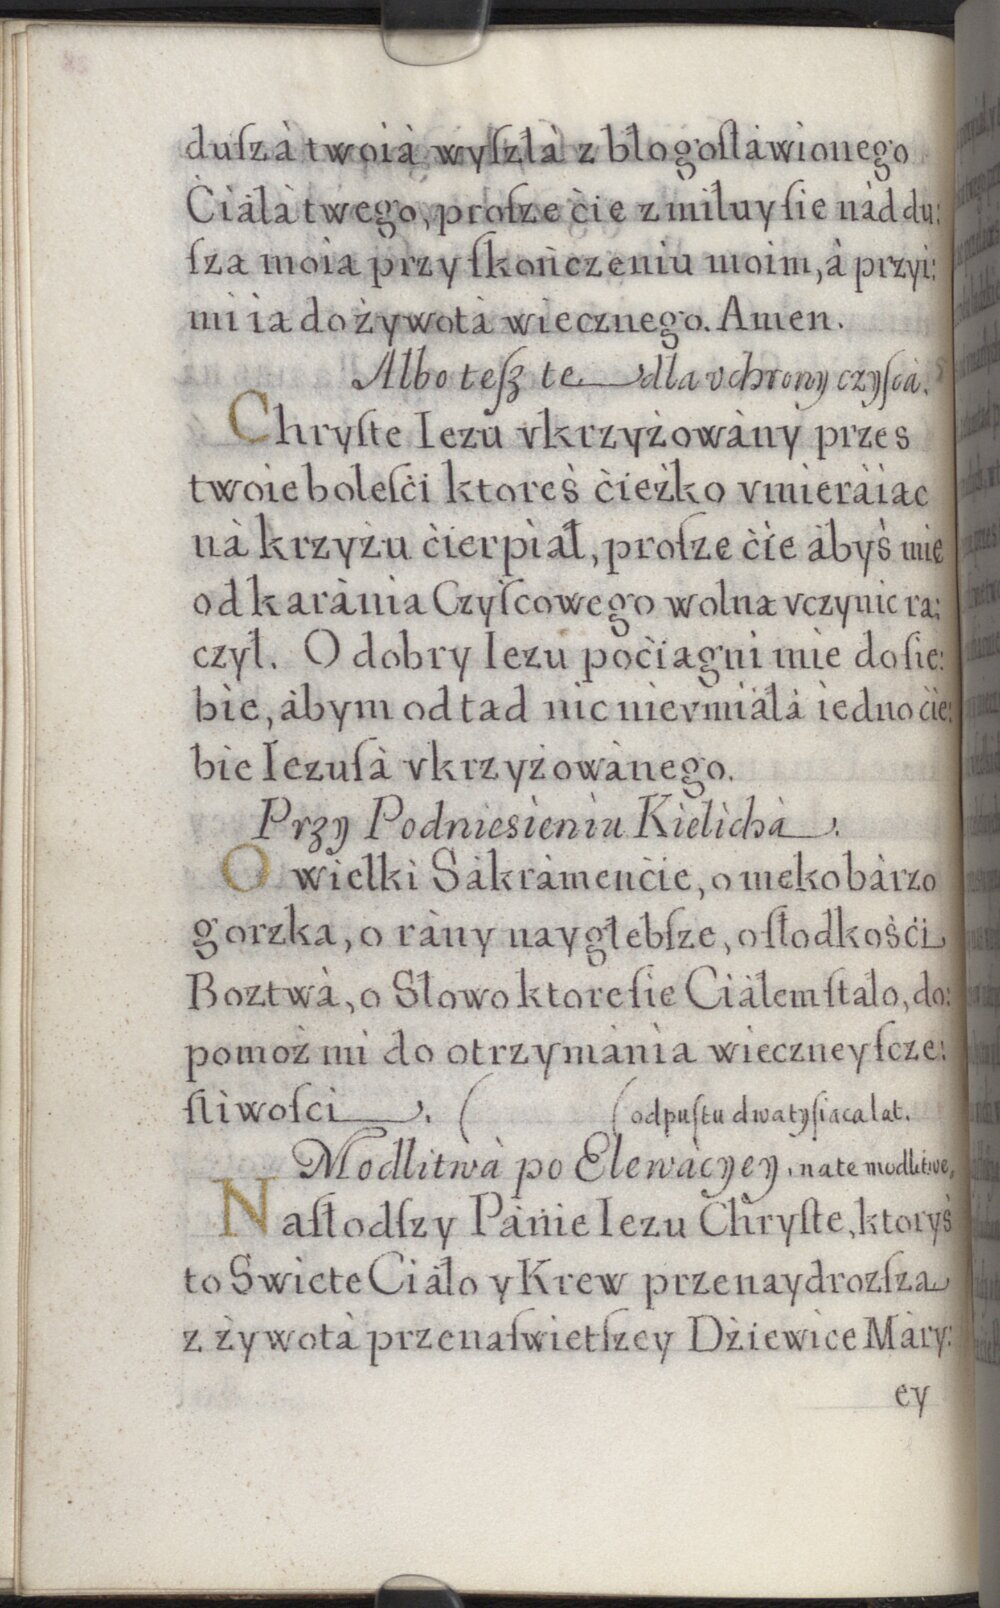 duſzà twoià wyſzłà z błogoſłàwionego
Ċiàłà twego, proſze ċie zmiłuy ſie nàd du:
ſza moia przy ſkończeniu moim, à przyi:
mi ia do żywotà wiecznego. Amen.
Albo teſz te dla vchrony czyſca.
Chryſte Iezu vkrzyżowàny przes
twoie boleſċi ktoreṡ ċieżko vmieràiac
nà krzyżu ċierpiàł, proſze ċie àbyṡ mie
od karània Czyſcowego wolna vczynic ra:
czył. O dobry Iezu poċiagni mie do ſie:
bie, àbym odtad nic nievmiàłà iedno ċie:
bie Iezuſà vkrzyżowànego.
Przy Podniesieniu Kielichà.
O wielki Sàkràmenċie, o meko bàrzo
gorzka, o ràny naygłebſze, o ſłodkoṡċi
Boztwà, o Słowo ktore ſie Ciàłem ſtało, do:
pomoż mi do otrzymània wieczney ſcze:
ſliwoſci. ( ( odpuſtu dwa tyſiaca lat.
Modlitwà po Elewàcyey, na te modlitwe,
Naſłodſzy Pànie Iezu Chryſte, ktoryṡ
to Swiete Ciàło y Krew przenaydrozſza
z żywotà przenaſwietſzey Dżiewice Màry:
ey